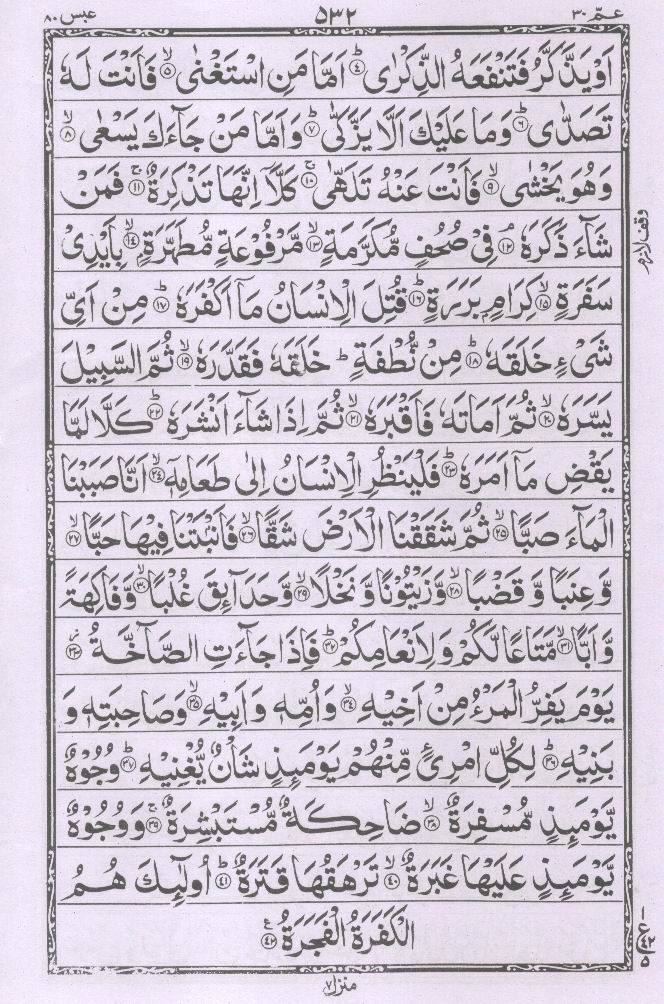 عبس ٨٠ ٥٣٢ عمّ ٣٠
اَوۡ يَذَّكَّرُ فَتَنۡفَعَهُ الذِّكۡرٰىؕ‏ ﴿۴﴾ اَمَّا مَنِ اسۡتَغۡنٰىۙ‏ ﴿۵﴾ فَاَنۡتَ لَهٗ
تَصَدّٰىؕ‏ ﴿۶﴾ وَمَا عَلَيۡكَ اَلَّا يَزَّكّٰىؕ‏ ﴿۷﴾ وَاَمَّا مَنۡ جَآءَكَ يَسۡعٰىۙ‏ ﴿۸﴾
وَهُوَ يَخۡشٰىۙ‏ ﴿۹﴾ فَاَنۡتَ عَنۡهُ تَلَهّٰىۚ‏ ﴿۱۰﴾ كَلَّاۤ اِنَّهَا تَذۡكِرَةٌ ۚ‏ ﴿۱۱﴾ فَمَنۡ
شَآءَ ذَكَرَهٗۘ‏ ﴿۱۲﴾ فِىۡ صُحُفٍ مُّكَرَّمَةٍۙ‏ ﴿۱۳﴾ مَّرۡفُوۡعَةٍ مُّطَهَّرَةٍۭ ۙ‏ ﴿۱۴﴾ بِاَيۡدِىۡ
وقف لازم
سَفَرَةٍۙ‏ ﴿۱۵﴾ كِرَامٍۢ بَرَرَةٍؕ‏ ﴿۱۶﴾ قُتِلَ الۡاِنۡسَانُ مَاۤ اَكۡفَرَهٗؕ‏ ﴿۱۷﴾ مِنۡ اَىِّ
شَىۡءٍ خَلَقَهٗؕ‏ ﴿۱۸﴾ مِنۡ نُّطۡفَةٍؕ خَلَقَهٗ فَقَدَّرَهٗۙ‏ ﴿۱۹﴾ ثُمَّ السَّبِيۡلَ
يَسَّرَهٗۙ‏ ﴿۲۰﴾ ثُمَّ اَمَاتَهٗ فَاَقۡبَرَهٗۙ‏ ﴿۲۱﴾ ثُمَّ اِذَا شَآءَ اَنۡشَرَهٗؕ‏ ﴿۲۲﴾ كَلَّا لَمَّا
يَقۡضِ مَاۤ اَمَرَهٗؕ‏ ﴿۲۳﴾ فَلۡيَنۡظُرِ الۡاِنۡسَانُ اِلٰى طَعَامِهٖۤۙ‏ ﴿۲۴﴾ اَنَّا صَبَبۡنَا
الۡمَآءَ صَبًّاۙ‏ ﴿۲۵﴾ ثُمَّ شَقَقۡنَا الۡاَرۡضَ شَقًّاۙ‏ ﴿۲۶﴾ فَاَنۡۢبَتۡنَا فِيۡهَا حَبًّاۙ‏ ﴿۲۷﴾
وَّعِنَبًا وَّقَضۡبًاۙ‏ ﴿۲۸﴾ وَّزَيۡتُوۡنًا وَّنَخۡلًاۙ‏ ﴿۲۹﴾ وَّحَدَآئِقَ غُلۡبًاۙ‏ ﴿۳۰﴾ وَّفَاكِهَةً
وَّاَبًّاۙ‏ ﴿۳۱﴾ مَّتَاعًا لَّكُمۡ وَلِاَنۡعَامِكُمۡؕ‏ ﴿۳۲﴾ فَاِذَا جَآءَتِ الصَّآخَّةُ‏ ﴿۳۳﴾
يَوۡمَ يَفِرُّ الۡمَرۡءُ مِنۡ اَخِيۡهِۙ‏ ﴿۳۴﴾ وَاُمِّهٖ وَاَبِيۡهِۙ‏ ﴿۳۵﴾ وَصَاحِبَتِهٖ وَ
بَنِيۡهِؕ‏ ﴿۳۶﴾ لِكُلِّ امۡرِیءٍ مِّنۡهُمۡ يَوۡمَئِذٍ شَاۡنٌ يُّغۡنِيۡهِؕ‏ ﴿۳۷﴾ وُجُوۡهٌ
يَّوۡمَئِذٍ مُّسۡفِرَةٌۙ‏ ﴿۳۸﴾ ضَاحِكَةٌ مُّسۡتَبۡشِرَةٌۚ‏ ﴿۳۹﴾ وَوُجُوۡهٌ
يَّوۡمَئِذٍ عَلَيۡهَا غَبَرَةٌۙ‏ ﴿۴۰﴾ تَرۡهَقُهَا قَتَرَةٌؕ‏ ﴿۴۱﴾ اُولٰٓئِكَ هُمُ
الۡكَفَرَةُ الۡفَجَرَةُ‏ ﴿۴۲﴾
ع
منزل ٧